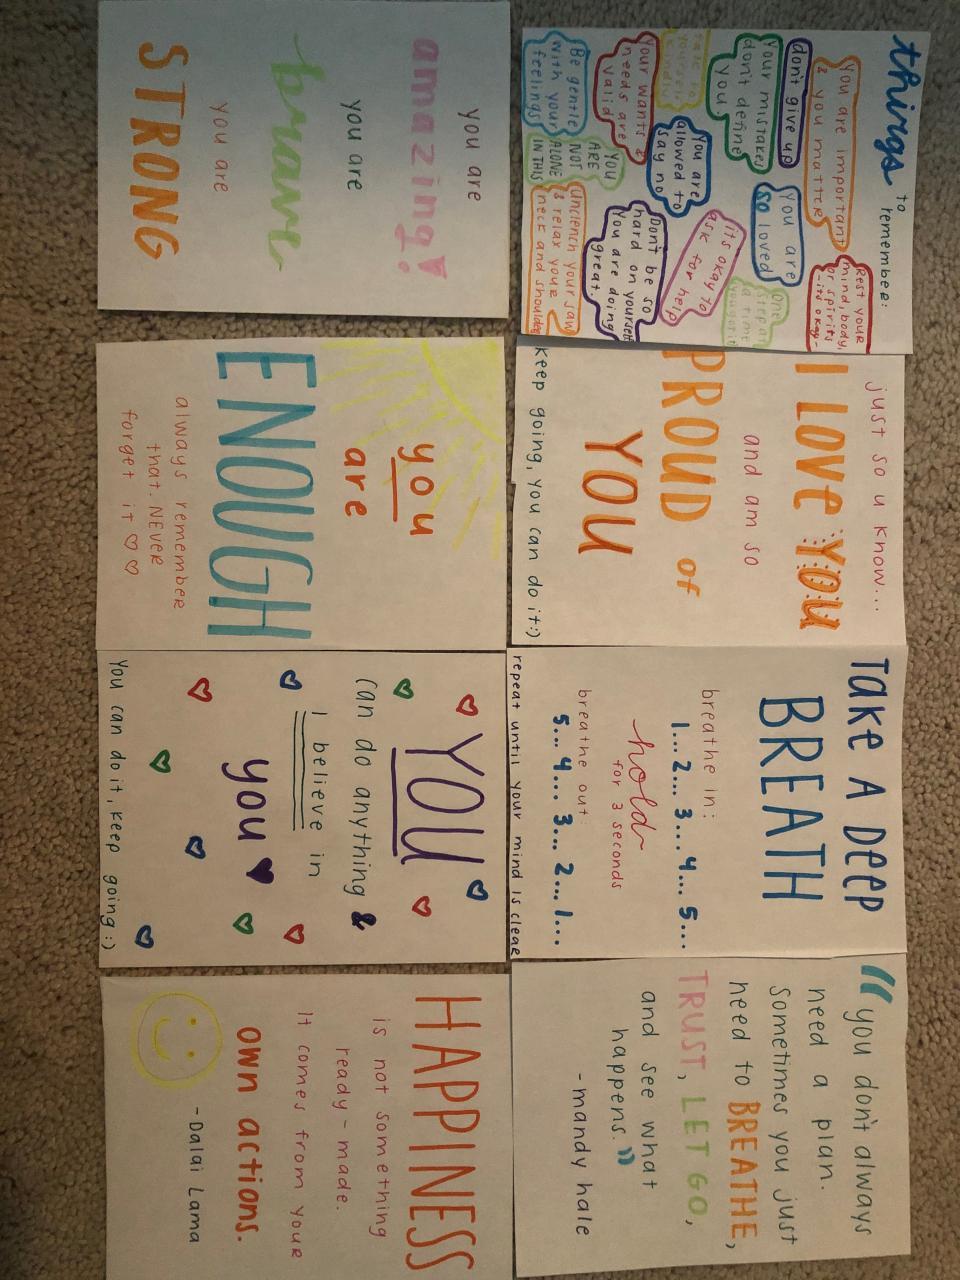 things to
remember:
You are important
& you matter
Rest your
mind, body,
or spirits
-its okay-
don't give up
You are
so loved
Your mistakes
don't define
you
One
step at
a time
You got it
its okay to
ask for help
You are
allowed to
say no
Your wants &
needs are
valid
Don't be so
hard on yourself
You are doing
great.
Be gentle
with your
feelings
YOU
ARE
NOT
ALONE
IN THIS
Unclench your jaw
& relax your
neck and shoulders
just so u know...
I LOVE YOU
and am so
PROUD of
YOU
keep going, you can do it:)
TAKE A DEEP
BREATH
breathe in:
1... 2... 3... 4... 5...
hold
for 3 seconds
breathe out:
5... 4... 3... 2... 1...
repeat until your mind is clear
"you don't always
need a plan.
sometimes you just
need to BREATHE,
TRUST, LET GO,
and see what
happens."
-mandy hale
you are
amazing!
you are
brave
you are
STRONG
you
are
ENOUGH
always remember
that. NEVER
forget it ♡♡
YOU
can do anything &
I believe in
you ♥
You can do it, keep going :)
HAPPINESS
is not something
ready-made.
It comes from your
own actions.
-Dalai Lama